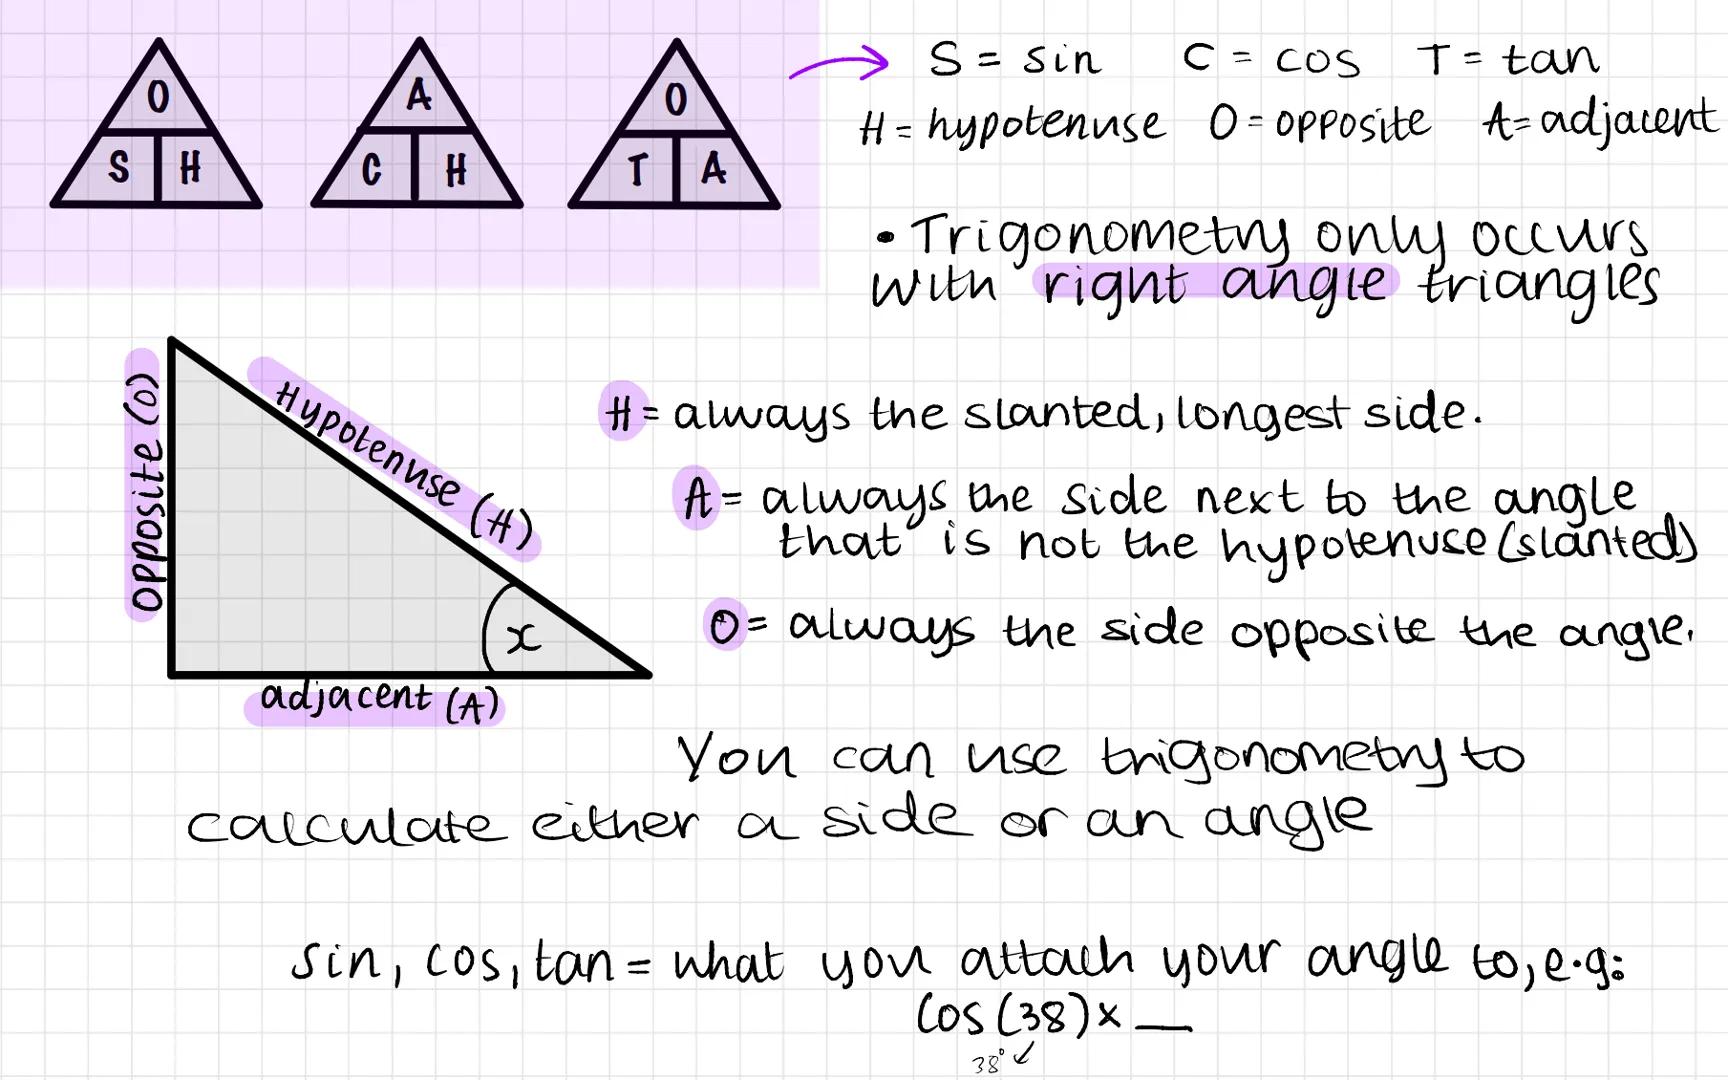 O
S H
A
C H
O
T A
S = sin C = cos T = tan
H = hypotenuse O = opposite A = adjacent
• Trigonometry only occurs
with right angle triangles
opposite (O)
Hypotenuse (H)
x
adjacent (A)
H = always the slanted, longest side.
A = always the side next to the angle
that is not the hypotenuse (slanted)
O = always the side opposite the angle.
You can use trigonometry to
calculate either a side or an angle
sin, cos, tan = what you attach your angle to, e.g:
cos (38) x __
38°